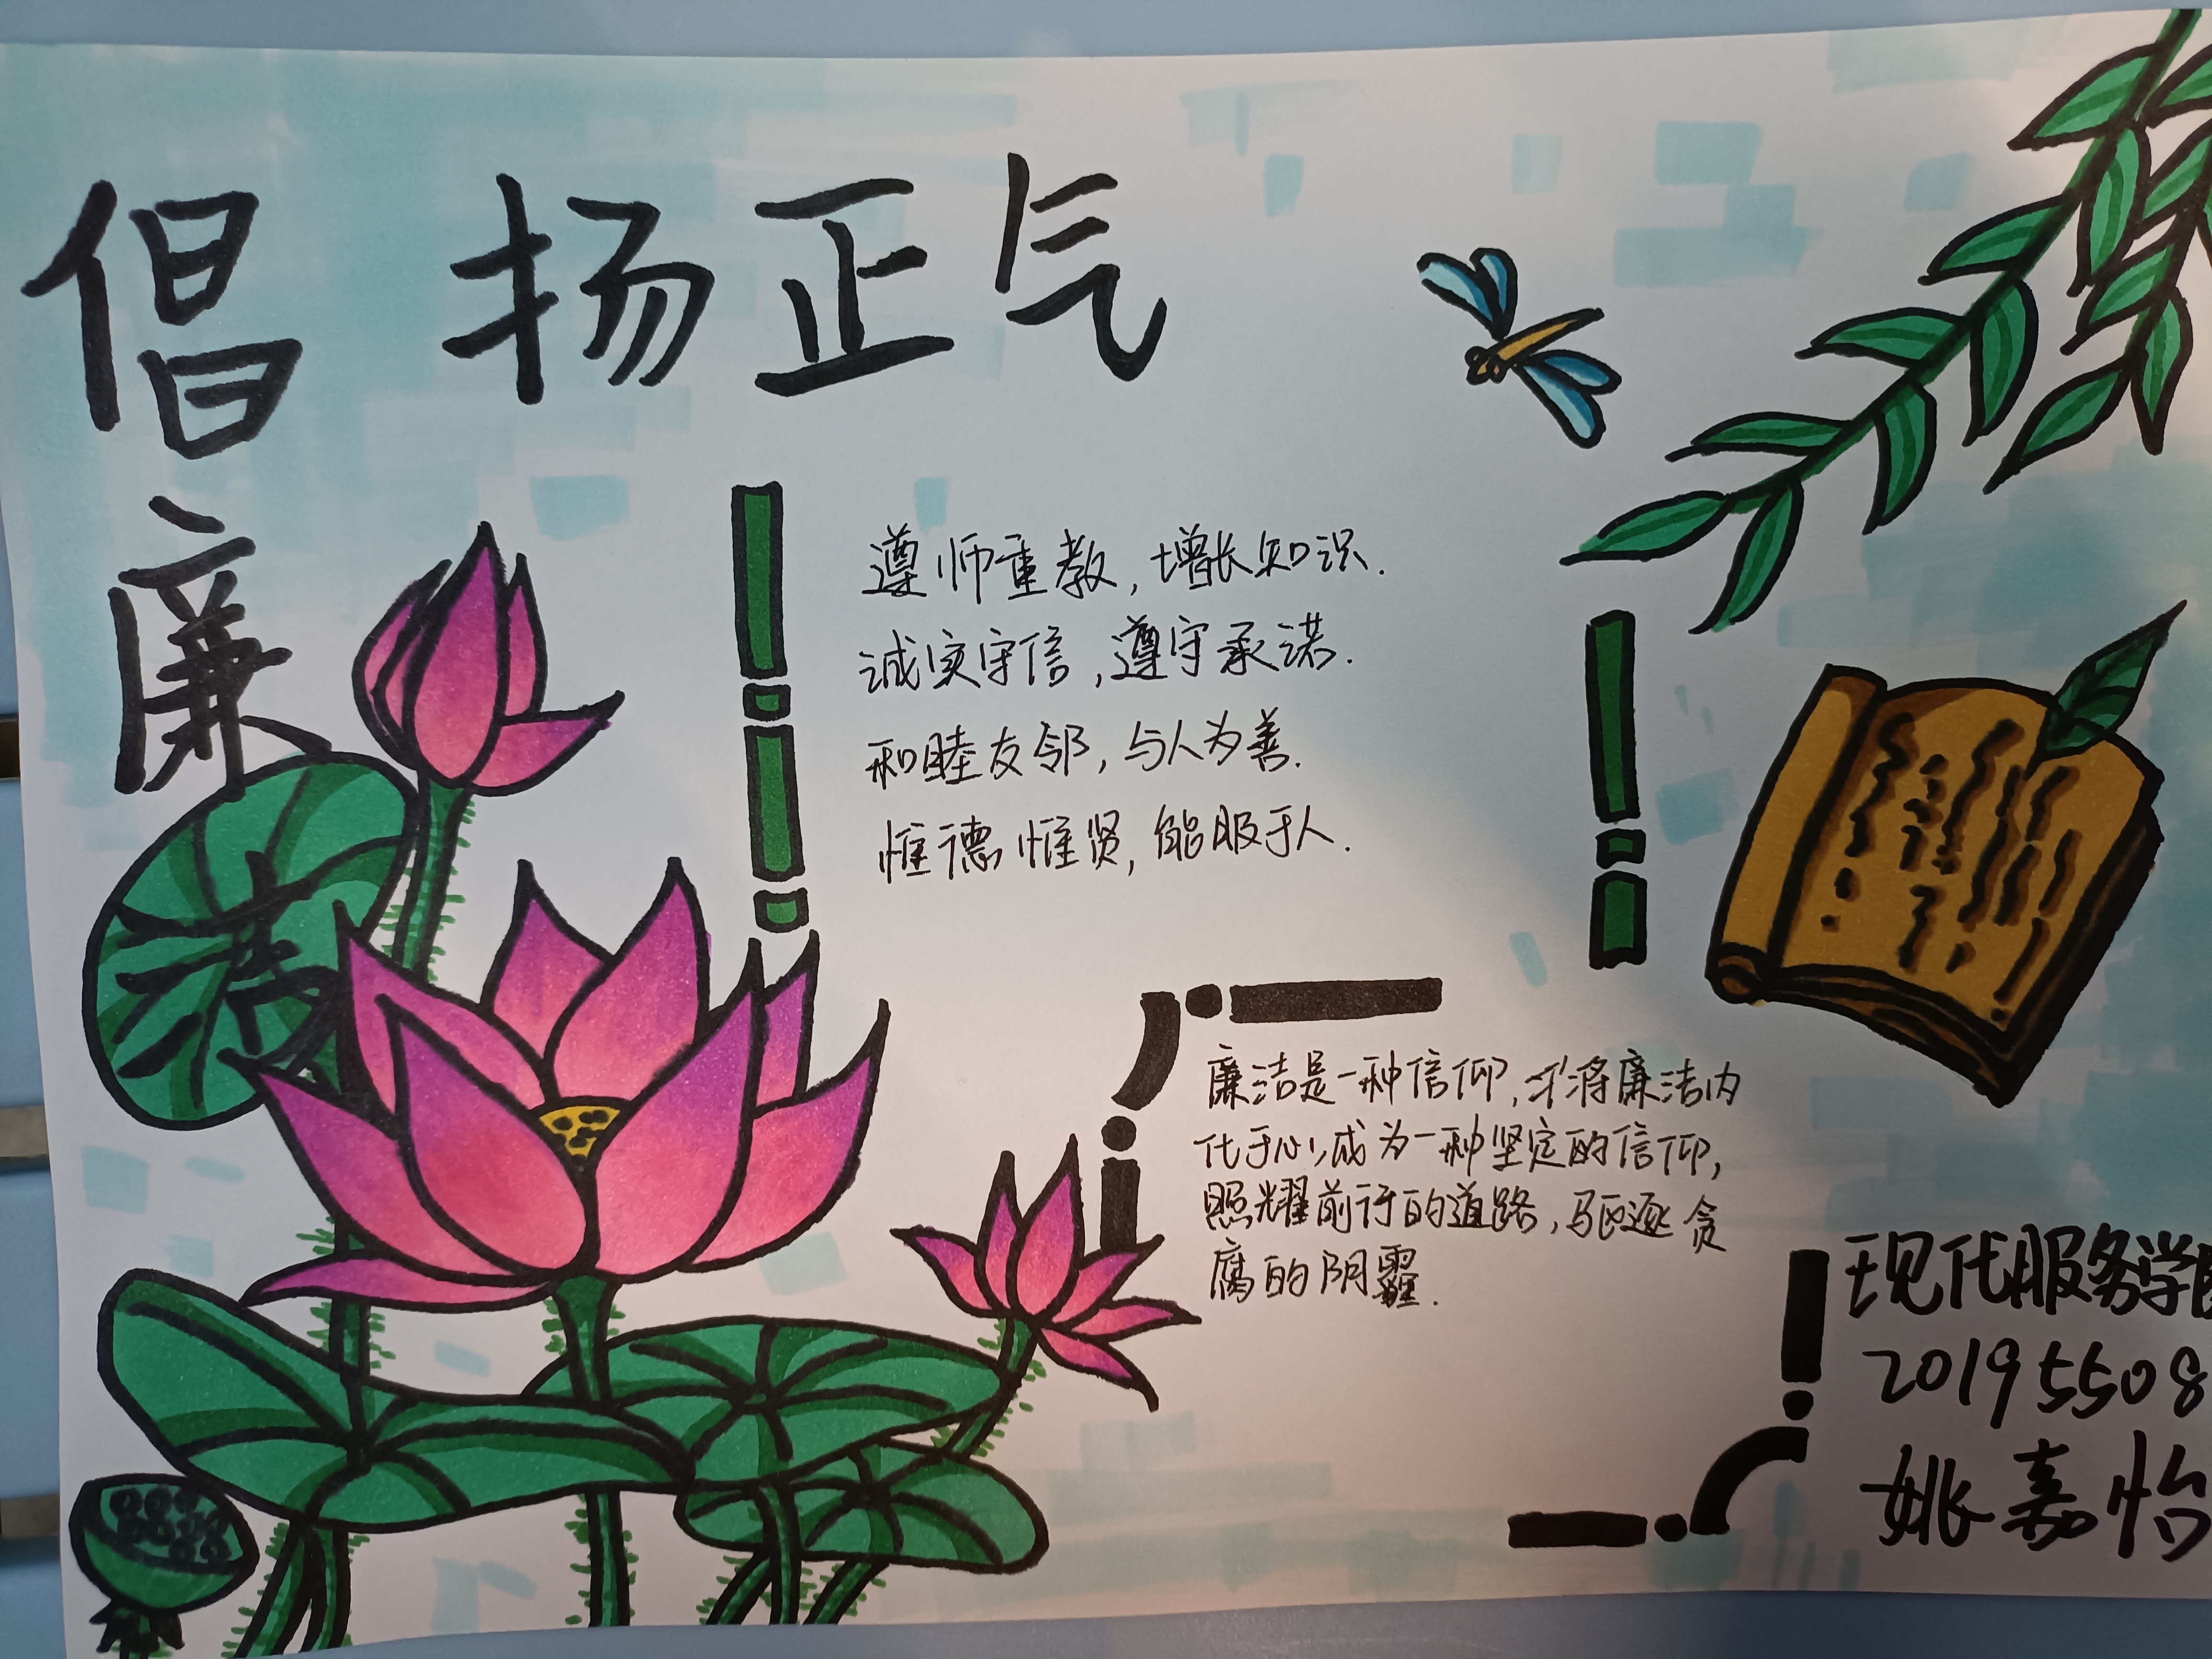 倡廉清
扬正气
遵师重教，增长知识.
诚实守信，遵守承诺.
和睦友邻，与人为善.
惟德惟贤，能服于人.
廉洁是一种信仰，才将廉洁内
化于心，成为一种坚定的信仰，
照耀前行的道路，驱逐贪
腐的阴霾.
现代服务学院
20195508
姚嘉怡